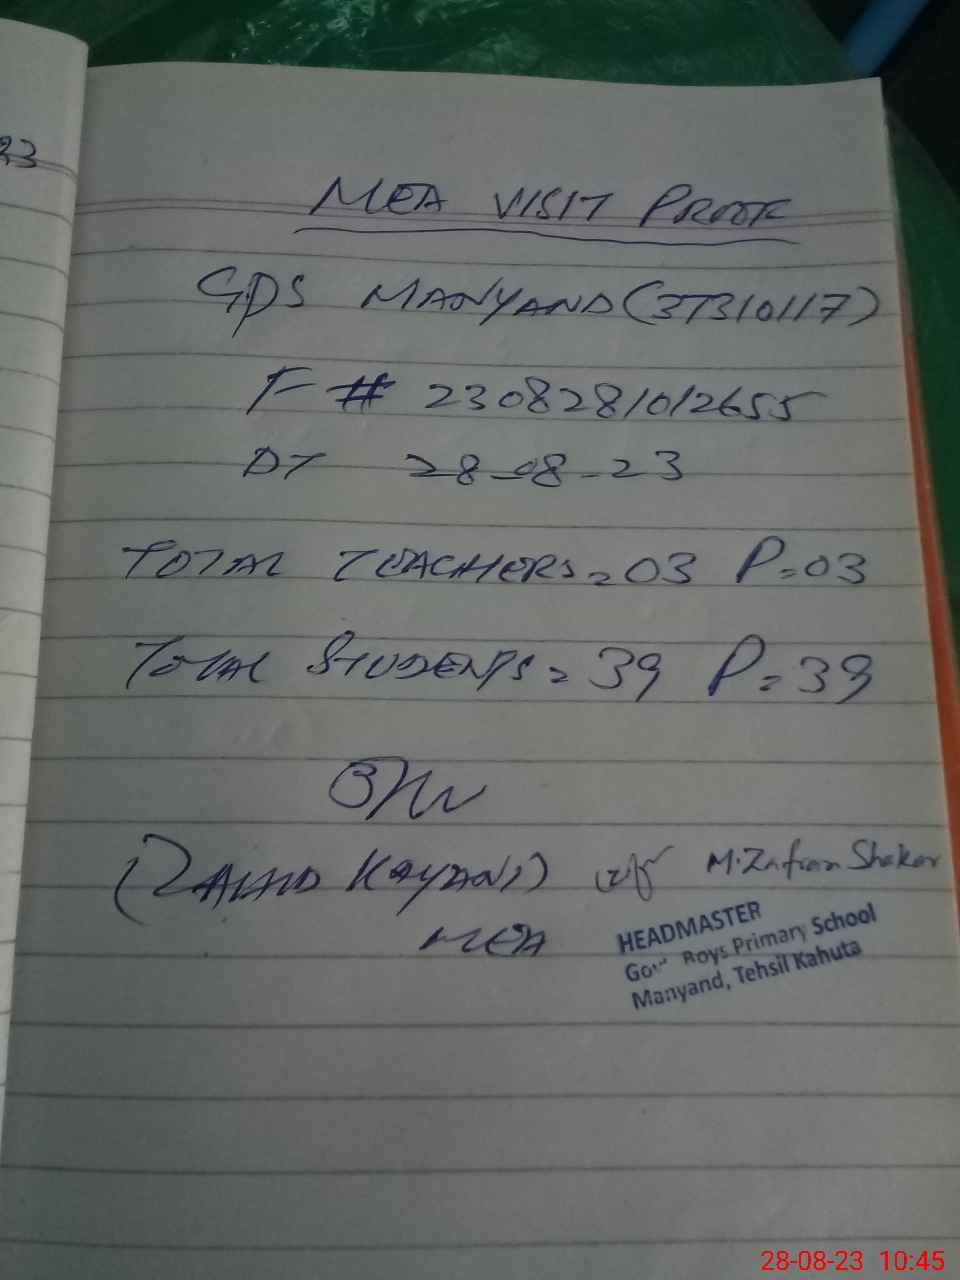 23
MEA VISIT PROOF
GPS MANYAND (37310117)
F # 2308281012655
DT 28-08-23
TOTAL TEACHERS = 03 P = 03
TOTAL STUDENTS = 39 P = 39
(ZAHID KAYANI)
M. Zafran Shakar
MEA
HEADMASTER
Govt Boys Primary School
Manyand, Tehsil Kahuta
28-08-23 10:45